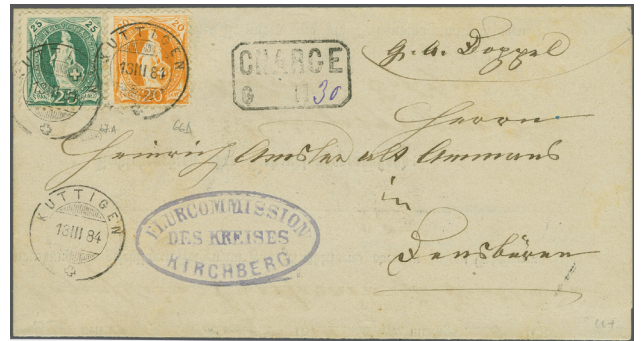 25 25
25
20 20
20
KUTTIGEN
13 III 84
KUTTIGEN
13 III 84
CHARGE
G 1130
G. A. Doppel
Herrn
Heinrich Amsler alt Ammann
in
Densbüren
KUTTIGEN
13 III 84
FLURCOMMISSION
DES KREISES
KIRCHBERG